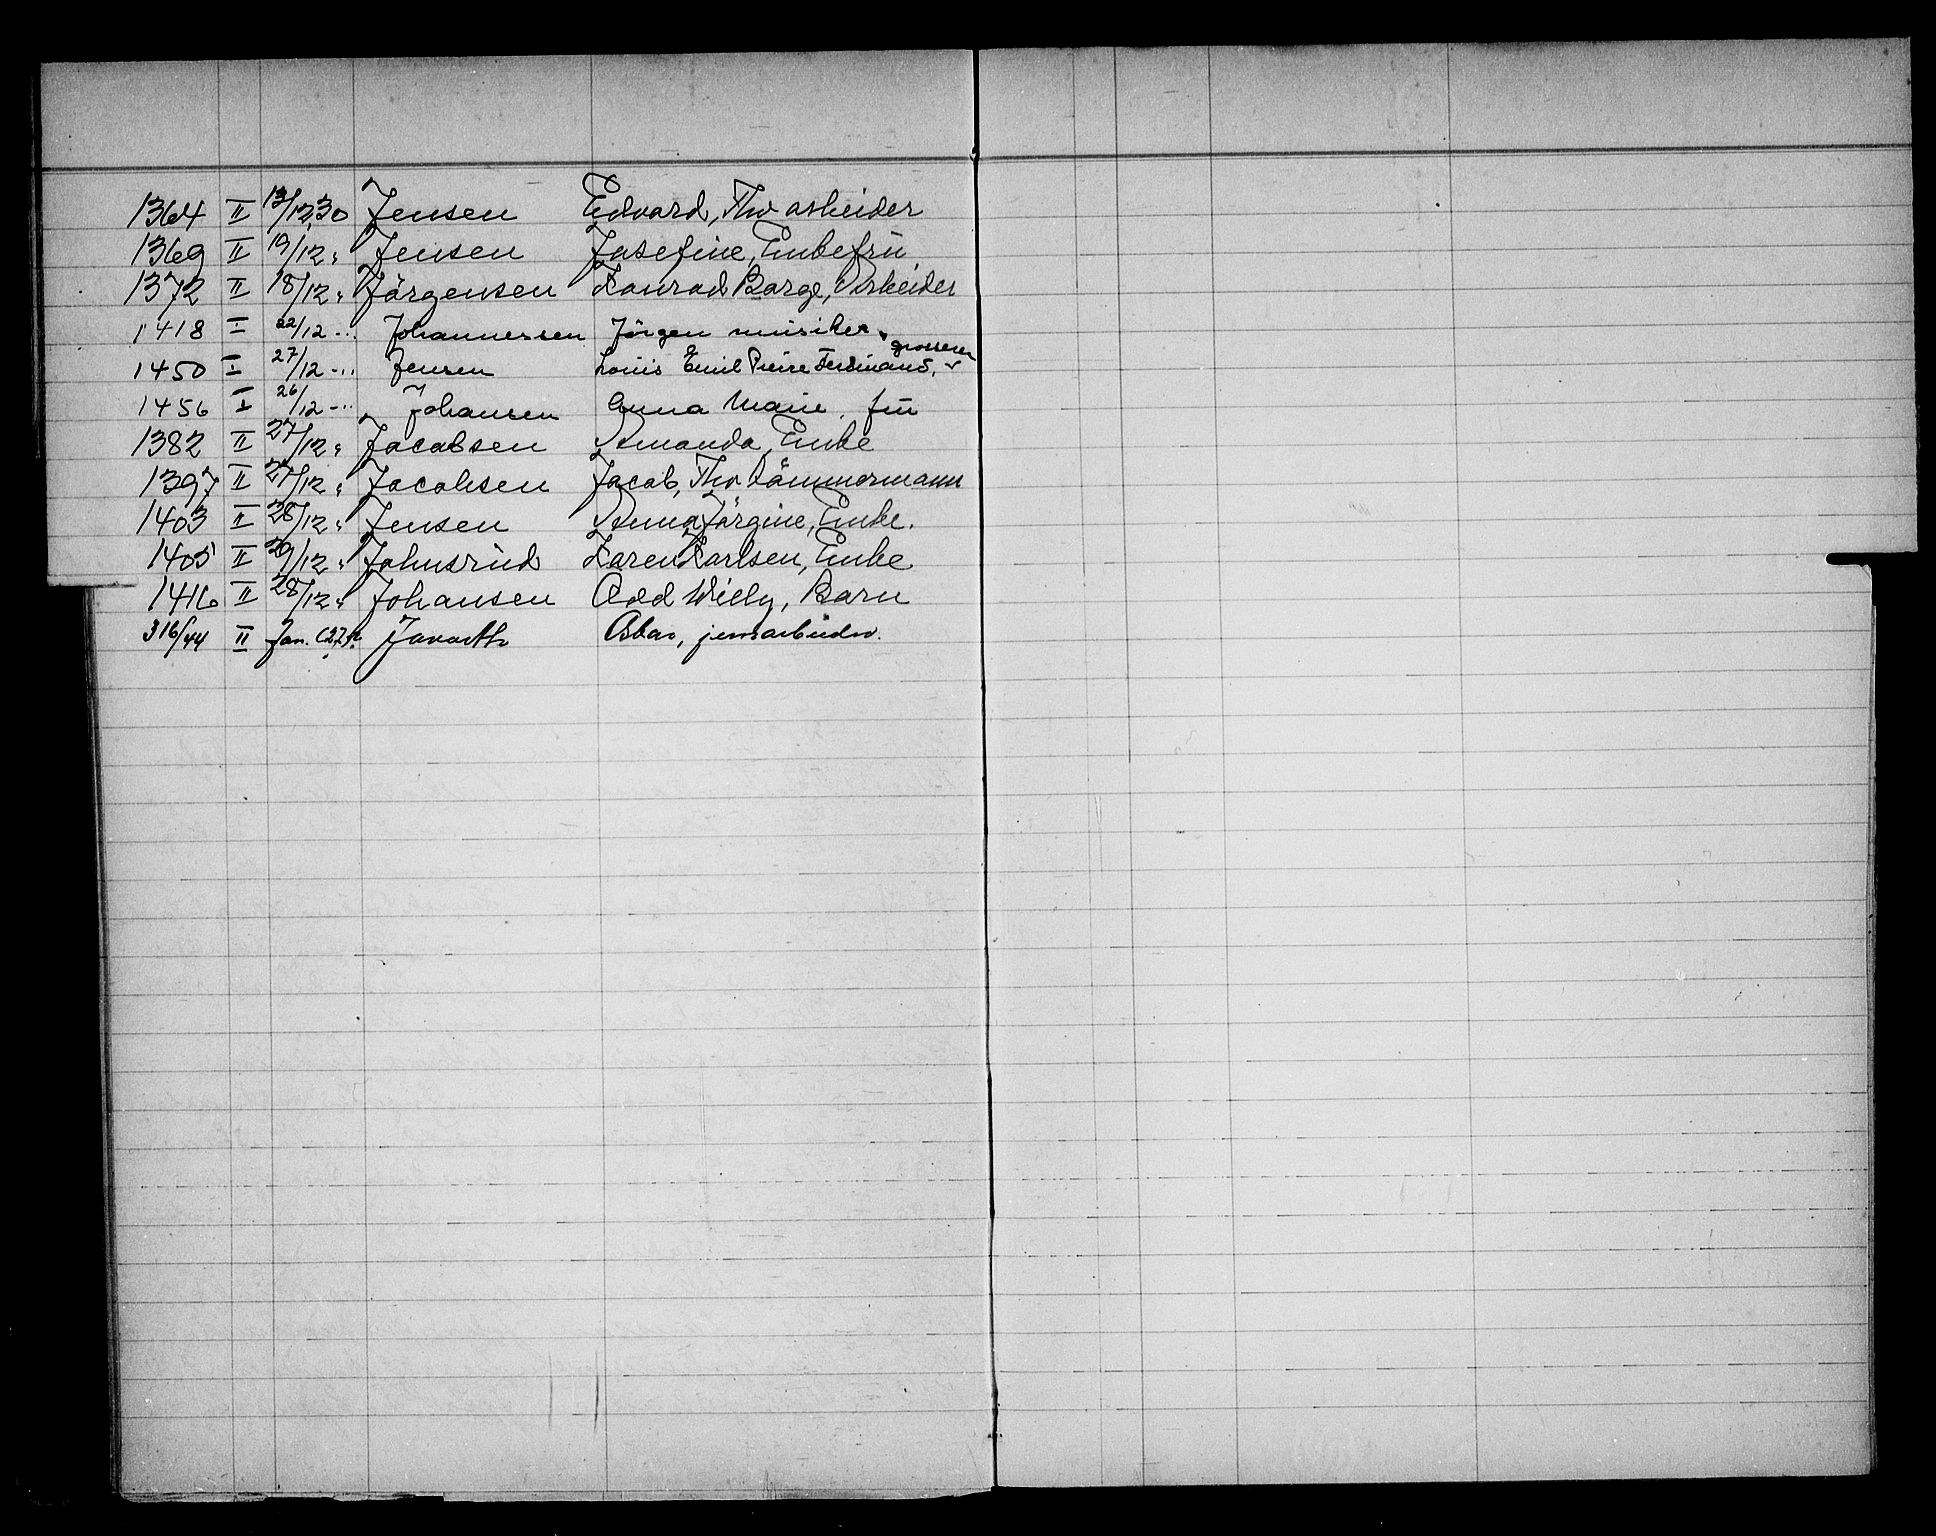 1364 II 13/12.30 Jensen Edvard, Thv arbeider
1369 II 19/12 " Jensen Josefine, Enkefrü
1372 II 18/12 " Jörgensen Konrad Borge, Arbeider
1418 I 22/12 - " Johannessen Jörgen musiker
1450 I 27/12 - " Jensen Louis Emil Pierre Ferdinand, grosserer
1456 I 26/12 - " Johansen Anna Marie. frü
1382 II 27/12 " Jacobsen Amanda, Enke
1397 II 27/12 " Jacobsen Jacob, Thv tömmermann
1403 II 28/12 " Jensen Anna Jörgine, Enke.
1405 II 29/12 " Johnsrüd Karen Karlsen, Enke
1416 II 28/12 " Johansen Odd Willy, Barn
316/44 II Jan. (27 Oskar, jernarbeider.